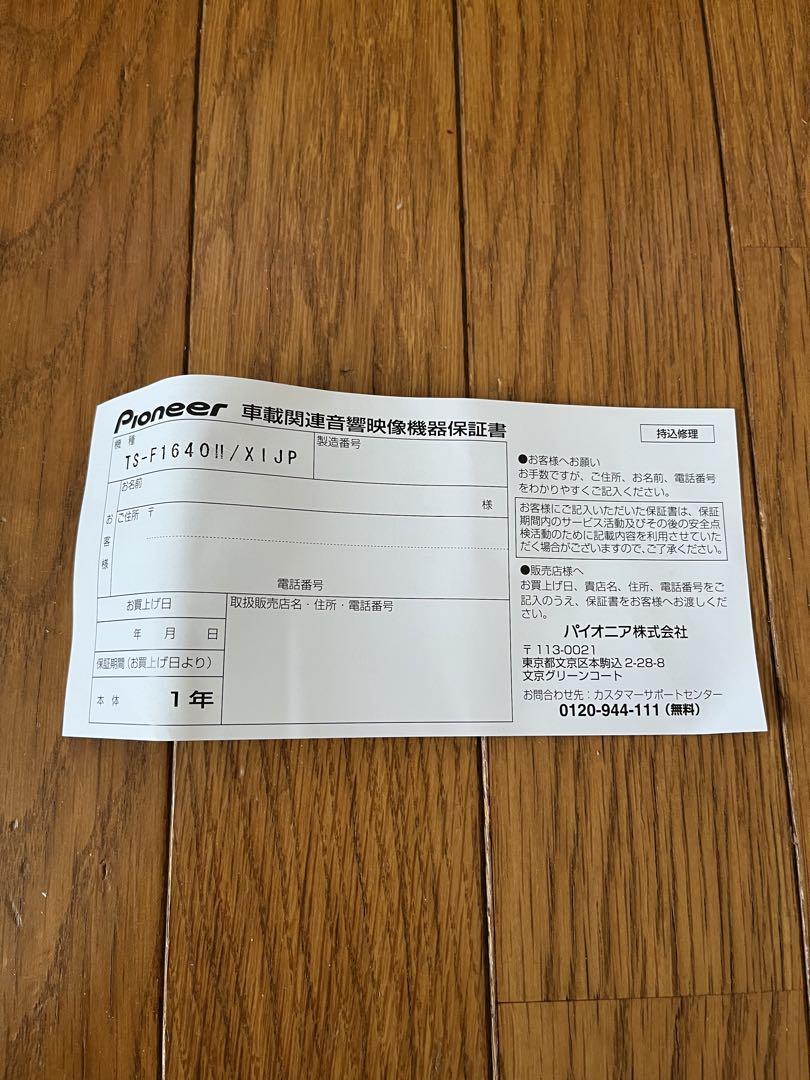 Pioneer 車載関連音響映像機器保証書
持込修理
機種
TS-F1640II/XIJP
製造番号
お客様
お名前
様
ご住所 〒
電話番号
お買上げ日
年 月 日
保証期間(お買上げ日より)
本体 1年
取扱販売店名・住所・電話番号
●お客様へお願い
お手数ですが、ご住所、お名前、電話番号
をわかりやすくご記入ください。
お客様にご記入いただいた保証書は、保証
期間内のサービス活動及びその後の安全点
検活動のために記載内容を利用させていた
だく場合がございますので、ご了承ください。
●販売店様へ
お買上げ日、貴店名、住所、電話番号をご
記入のうえ、保証書をお客様へお渡しくだ
さい。
パイオニア株式会社
〒113-0021
東京都文京区本駒込2-28-8
文京グリーンコート
お問合わせ先:カスタマーサポートセンター
0120-944-111(無料)